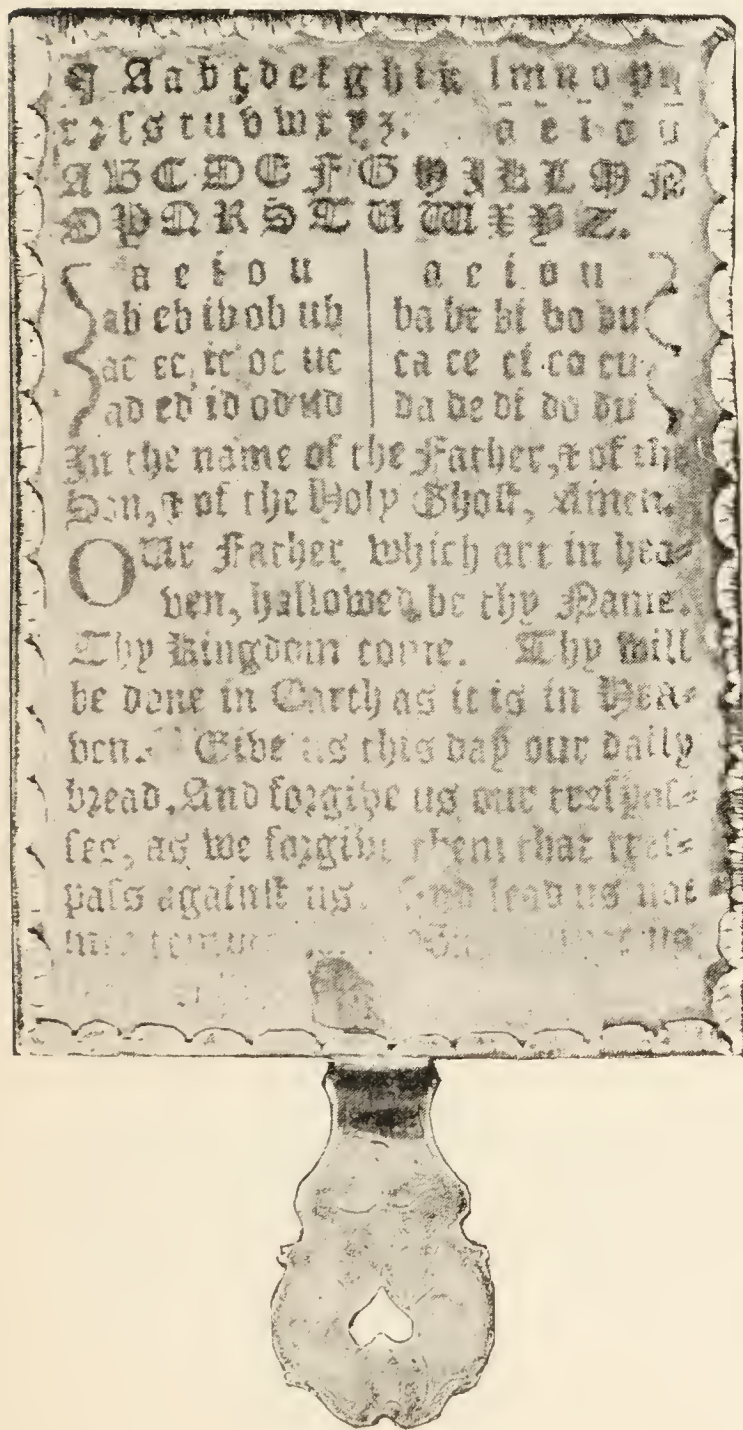 Aabcdefghik lmnopq
rꝛſstuvwxyz. ā ē ī ō ū
ABCDEFGHIKLMN
OPQRSTUWXYZ.
a e i o u | a e i o u
ab eb ib ob ub | ba be bi bo bu
ac ec ic oc uc | ca ce ci co cu
ad ed id od ud | da de di do du
In the name of the Father, & of the
Son, & of the Holy Ghoſt, Amen.
OUr Father which art in hea-
ven, hallowed be thy Name.
Thy Kingdom come. Thy will
be done in Earth as it is in Hea-
ven. Give us this day our daily
bꝛead, And foꝛgive us our treſpaſ-
ſes, as we foꝛgive them that treſ-
paſs againſt us. And lead us not
us